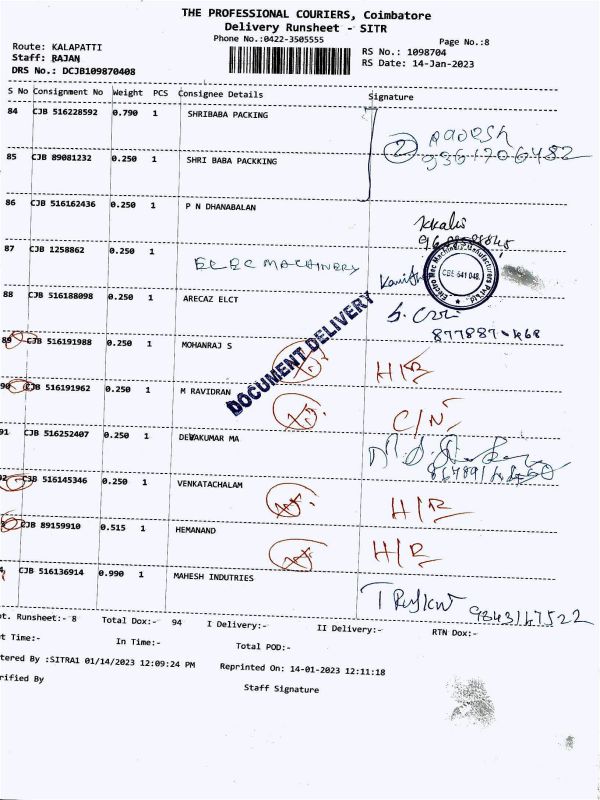 THE PROFESSIONAL COURIERS, Coimbatore
Delivery Runsheet - SITR
Phone No.:0422-3505555
Page No.:8
Route: KALAPATTI
RS No.: 1098704
Staff: RAJAN
RS Date: 14-Jan-2023
DRS No.: DCJB109870408
S No Consignment No Weight PCS Consignee Details Signature
84 CJB 516228592 0.790 1 SHRIBABA PACKING
2
85 CJB 89081232 0.250 1 SHRI BABA PACKKING
86 CJB 516162436 0.250 1 P N DHANABALAN
87 CJB 1258862 0.250 1 ELEC MACHINERY
CBE 641 048
88 CJB 516188098 0.250 1 ARECAZ ELCT
DOCUMENT DELIVERY
89 CJB 516191988 0.250 1 MOHANRAJ S H/R
90 CJB 516191962 0.250 1 M RAVIDRAN C/N
91 CJB 516252407 0.250 1 DEVAKUMAR MA
92 CJB 516145346 0.250 1 VENKATACHALAM H/R
CJB 89159910 0.515 1 HEMANAND H/R
CJB 516136914 0.990 1 MAHESH INDUTRIES
9843147522
ot. Runsheet:- 8 Total Dox:- 94 I Delivery:- II Delivery:- RTN Dox:-
t Time:- In Time:- Total POD:-
tered By :SITRA1 01/14/2023 12:09:24 PM Reprinted On: 14-01-2023 12:11:18
rified By Staff Signature